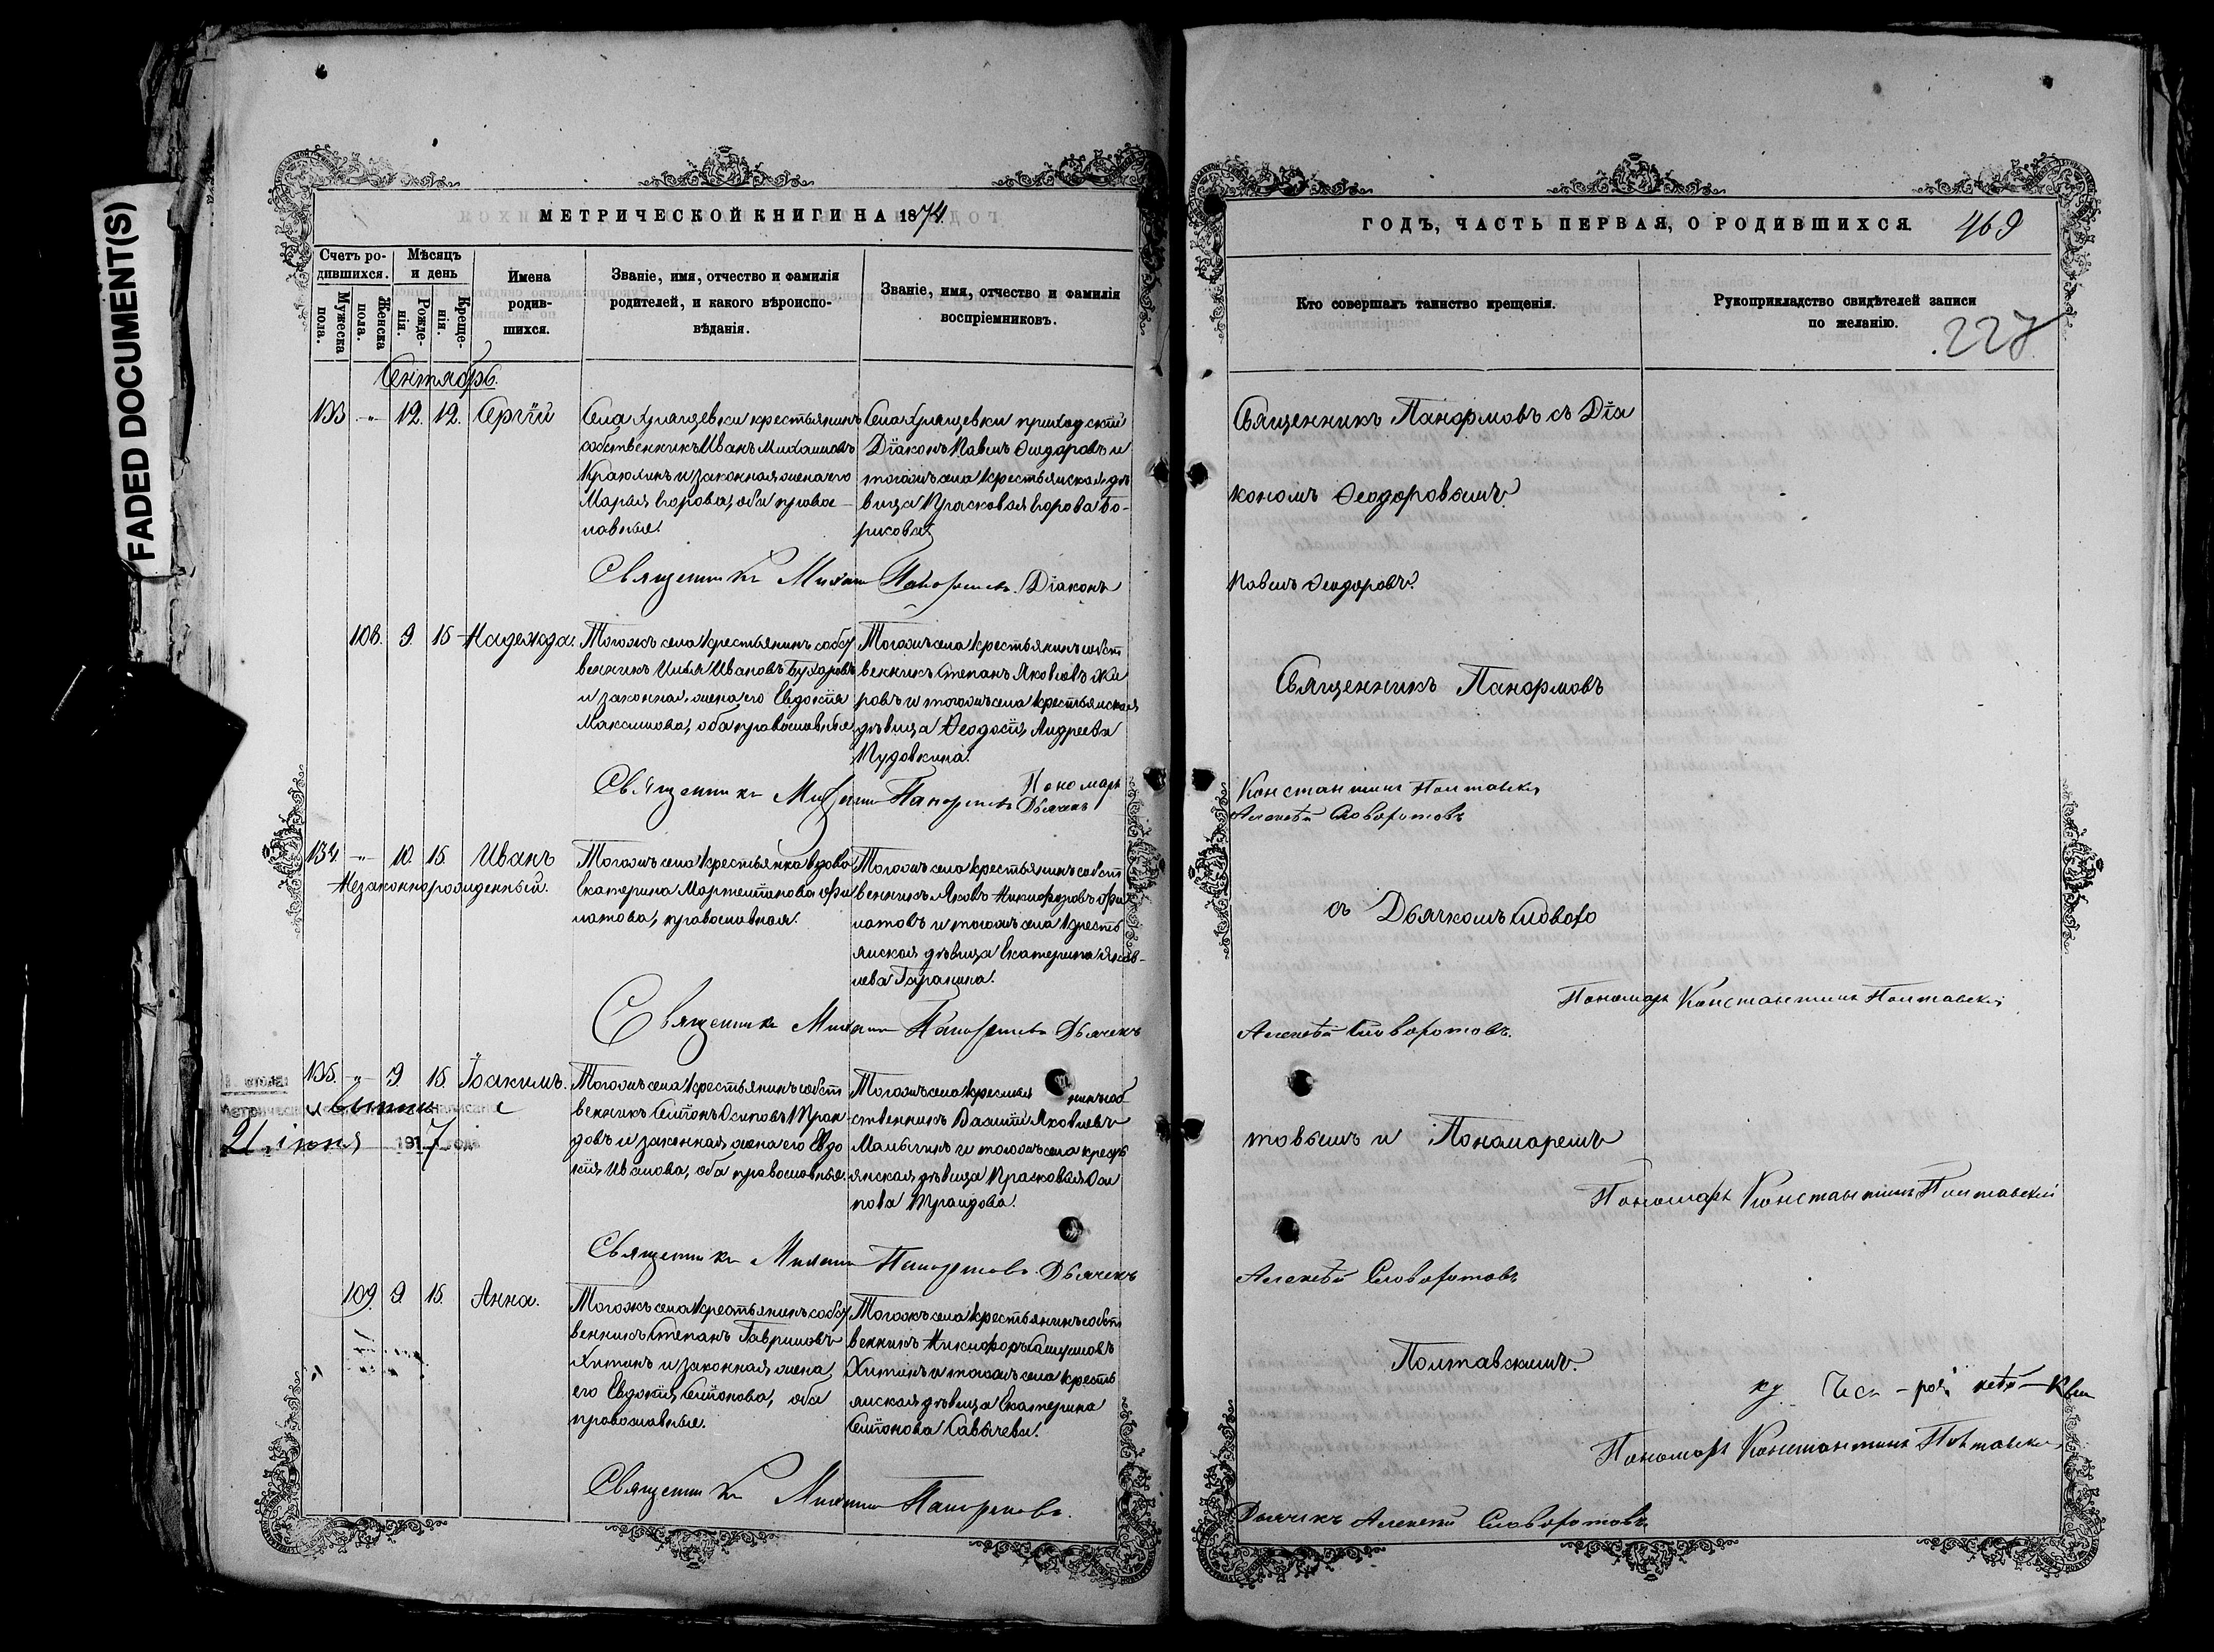 FADED DOCUMENT(S)
МЕТРИЧЕСКОЙ КНИГИ НА 1874
Счетъ родившихся.
Мужеска пола.
Женска пола.
Мѣсяцъ и день
Рожденія.
Крещенія.
Имена родившихся.
Званіе, имя, отчество и фамилія
родителей, и какого вѣроиспо-
вѣданія.
Званіе, имя, отчество и фамилія
воспріемниковъ.
Сентябрь.
133 " 12. 12. Сергій
Села Хрящевки крестьянинъ
собственникъ Иванъ Михайловъ
и законная жена его
Марья Егорова, оба правос-
лавные.
Села Хрящевки приходскій
Діаконъ Павелъ Ѳеодоровъ и
тогожъ села крестьянская дѣ-
вица Прасковья Егорова Бо-
рисова.
Священникъ Михаилъ Панормовъ. Діаконъ
108. 9. 15 Надежда.
Тогожъ села крестьянинъ собст
венникъ Илья Ивановъ Бухаровъ
и законная жена его Евдокія
Максимова, оба православные
Тогожъ села крестьянинъ собст
венникъ Степанъ Яковлевъ Жи
ровъ и тогожъ села крестьянская
дѣвица Ѳеодосія Андреева
Пудовкина.
Священникъ Михаилъ Панормовъ Пономарь
Дьячекъ
134 " 10. 15. Иванъ
Незаконнорожденный.
Тогожъ села крестьянка вдова
Екатерина Мартемьянова Фи
латова, православная.
Тогожъ села крестьянинъ собст
венникъ Яковъ Никифоровъ Фи
латовъ и тогожъ села кресть
янская дѣвица Екатерина Яков-
лева Гаранина.
Священникъ Михаилъ Панормовъ Дьячекъ
135. " 9. 15. Іоакимъ.
21 іюня 1917 года
Тогожъ села крестьянинъ собст
венникъ Семіонъ Осиповъ Тран
довъ и законная жена его Евдо
кія Иванова, оба православные.
Тогожъ села крестья нинъ соб-
ственникъ Василій Яковлевъ
и тогожъ села кресть
янская дѣвица Прасковья Оси
пова Трандова.
Священникъ Михаилъ Панормовъ. Дьячекъ
109. 9. 15. Анна.
Тогожъ села крестьянинъ собст
венникъ Степанъ Гавриловъ
Хитинъ и законная жена
его Евдокія Семіонова, оба
православные.
Тогожъ села крестьянинъ собст
венникъ Никифоръ
Хитинъ и тогожъ села кресть
янская дѣвица Екатерина
Семіонова Савичева.
Священникъ Михаилъ Панормовъ.
ГОДЪ, ЧАСТЬ ПЕРВАЯ, О РОДИВШИХСЯ. 469
Кто совершалъ таинство крещенія.
Рукоприкладство свидѣтелей записи
по желанію.
227
Священникъ Панормовъ съ Діа
кономъ Ѳеодоровымъ.
Павелъ Ѳеодоровъ.
Священникъ Панормовъ
Константинъ Полтавскій
Алексѣй Словоротовъ
съ Дьячкомъ Словоро
Пономарь Константинъ Полтавскій
Алексѣй Словоротовъ.
товымъ и Пономаремъ
Пономарь Константинъ Полтавскій
Алексѣй Словоротовъ
Полтавскимъ.
Пономарь Константинъ Полтавскій
Дьячекъ Алексѣй Словоротовъ